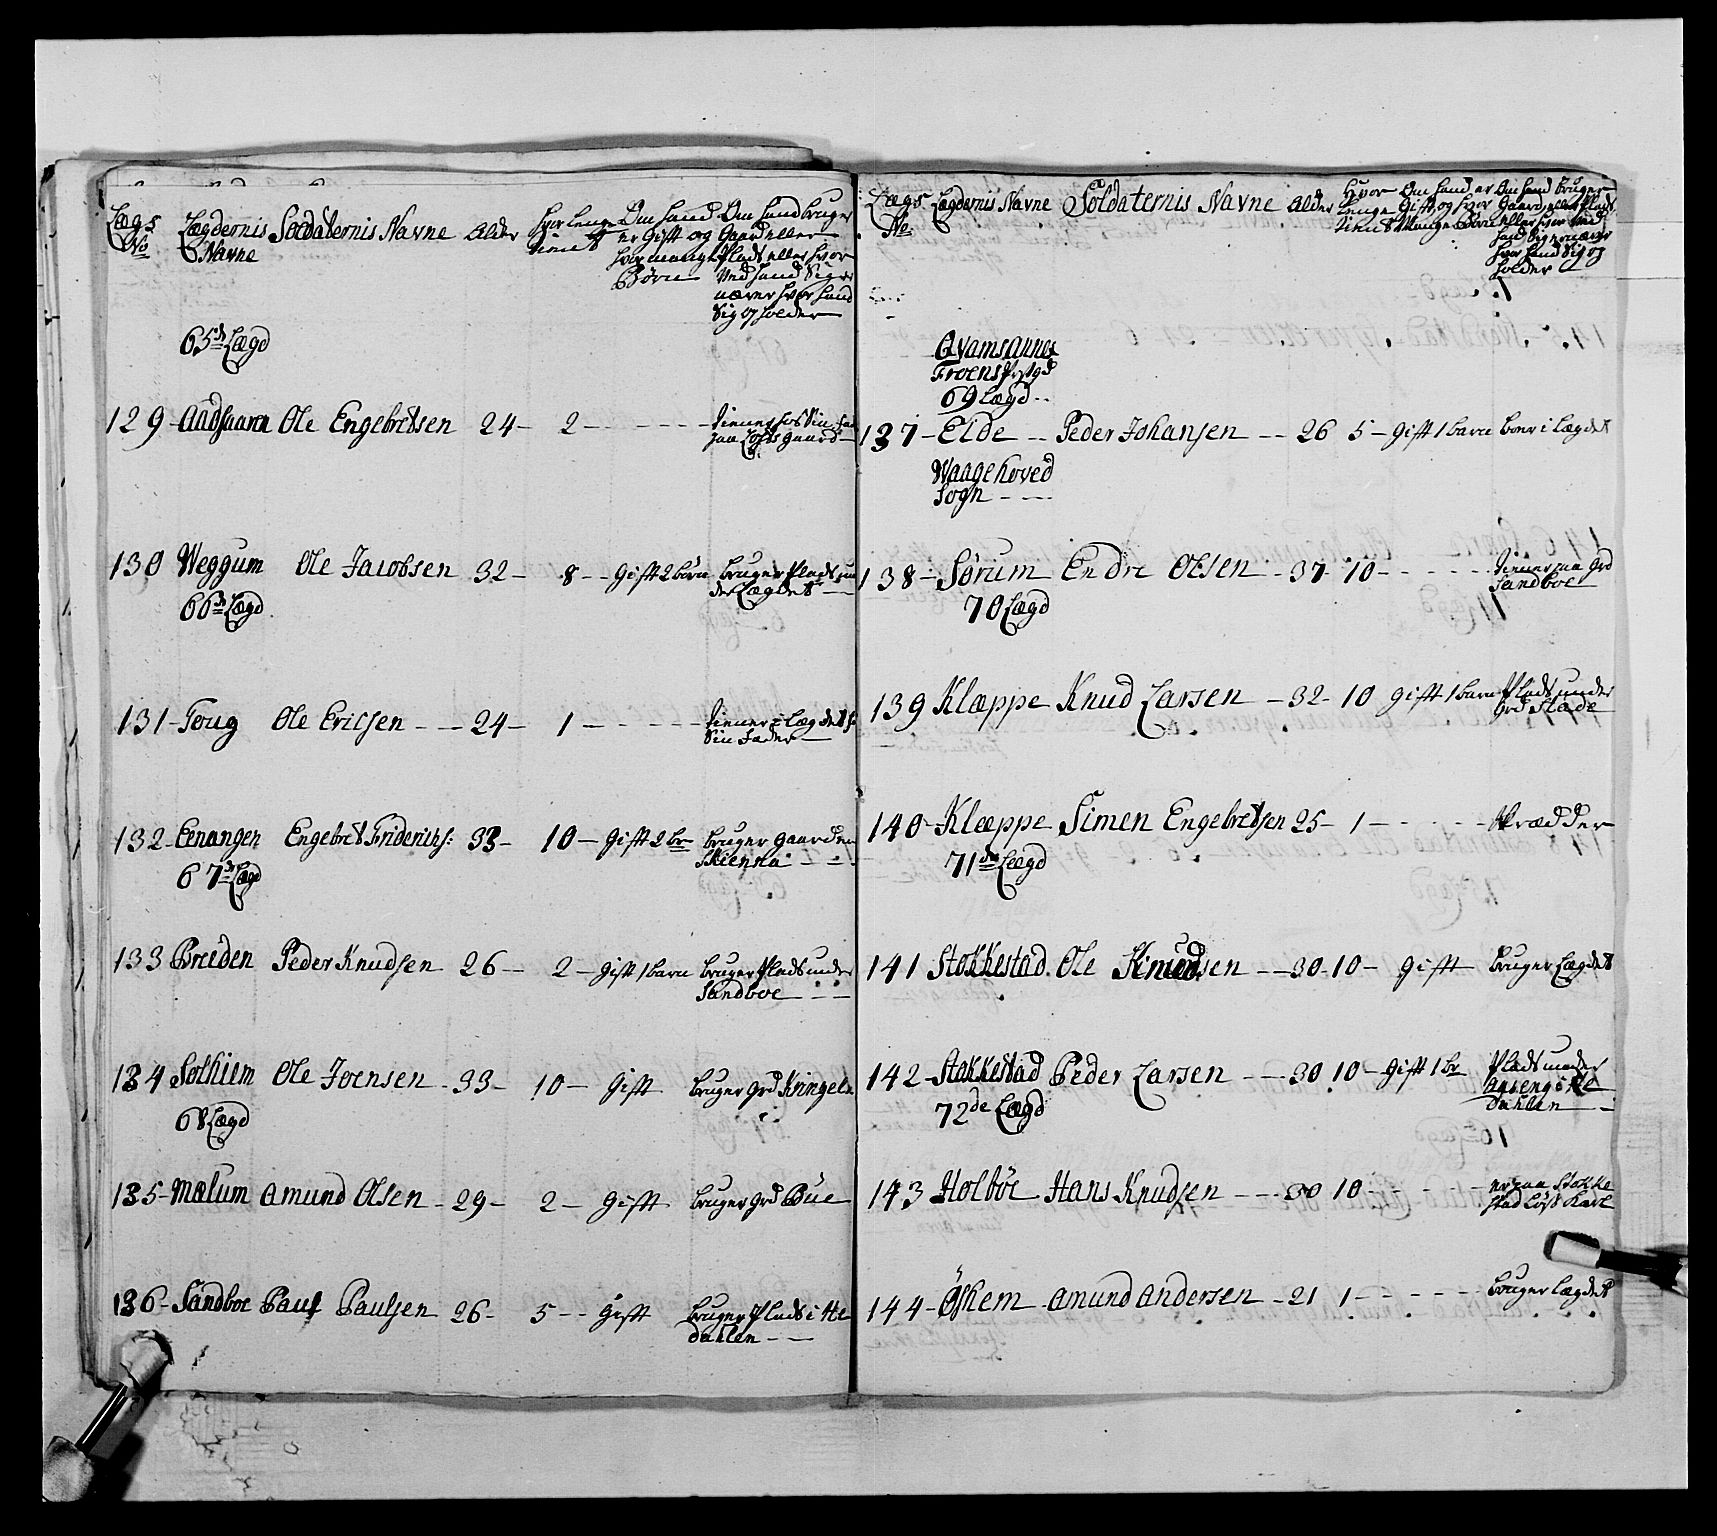 Lægs No
Lægdernis Navne
Soldaternis Navne
Alder
Hvor Lenge tient
Om hand er Gift og hvor mange Børn
Om hand bruger Gaard eller Plads eller hvor ved hand Sig er nærer hvor hand Sig oph holder
65de Lægd
129 - Ole Engebretsen 24 - 2 - tiener hos Sin paa Gaard
130 Weggum Ole Jacobsen 32 - 8 - Gift 2 børn bruger Plads un
der Lægdet
66de Lægd
131 - Toug Ole Ericsen - 24 - 1 - tiener i Lægdet
Sin Fader
132 - Eenangen Engebret Friderichs: 33 - 10 - Gift 2 br bruger Gaarden
Skienna
67de Lægd
133 Breeden Peder Knudsen 26 - 2 - Gift 1 barn bruger Plads under
Sandboe
134 Solhiem Ole Joensen - 33 - 10 - Gift bruger Grd Kringeln
68 Lægd
135 - Mælum Amund Olsen - 29 - 2 - Gift bruger Grd Büe
136 - Sandboe Paul Paulsen 26 - 5 - Gift bruger Plads i He
dahlen
Lægs No
Lægdernis Navne
Soldaternis Navne
Alder
Hvor Lenge tient
Om hand er Gift og hvor Mange Børn
Om hand bruger Gaard eller Plads eller hvor ved hand Sig ernærer hvor hand Sig op holder
Qvams Annex
Froens Pregd
69 Lægd
137 - Eide Peder Johansen - 26 5 - Gift 1 barn boer i Lægdet
Waage hoved
Sogn
138 - Sørum Endre Olsen - 37 - 10 - tiener paa Grd
Sandboe
70 Lægd
139 Klæppe Knud Larsen - 32 - 10 Gift 1 barn Plads under
Grd Slæde
140 - Klæppe Simen Engebretsen 25 - 1 - Skrædder
71de Lægd
141 Stokkestad Ole - 30 - 10 - Gift bruger Lægdet
142 - Stokkestad Peder Larsen - 30 10 - Gift 1 br Plads under
i He
dahlen
72de Lægd
143 Holböe Hans Knudsen - 30 10 - er paa Stokke
stad Löß Karl
144 - Öshem Amund Andersen - 21 1 - bruger Lægdet